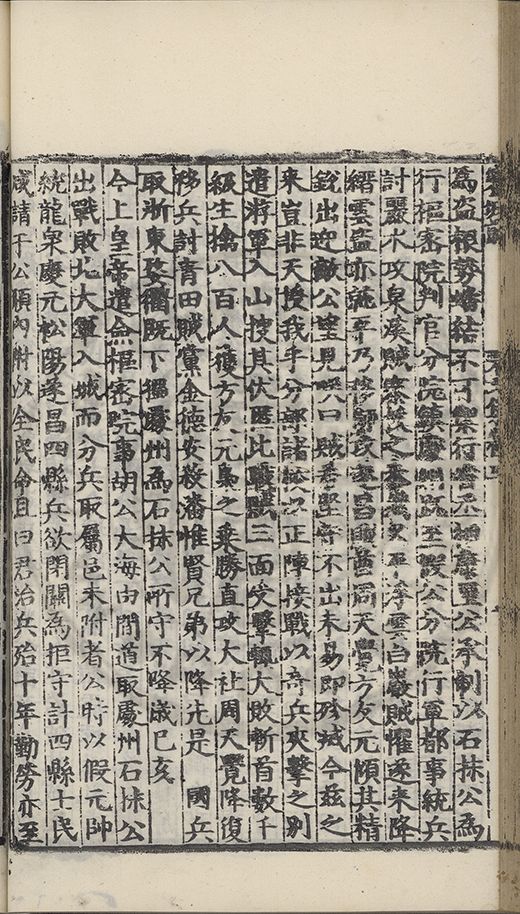 為盗根勢蟠結不可禦行省丞相
公承制以石抹公為
行樞密院判官分院公分院行軍都事統兵
討麗水攻皐溪賊之白巖賊懼遂來降
縉雲盗亦乃周天覺方友元傾其精
銳出迎敵公望見曰賊若堅守不出未易即殄滅今兹之
來豈非天授我乎分部諸以正陣接戰以奇兵夾擊之别
遣將軍入山搜其伏匿比戰賊三面受擊輒大敗斬首數千
級生擒八百人獲方友元梟之乗勝直攻大社周天覺降復
移兵討青田賊黨金德安殺潘惟賢兄弟以降先是 國兵
取浙東婺衢既下獨處州為石抹公所守不降歳已亥
今上皇帝遣僉樞密院事胡公大海由間道取處州石抹公
出戰敗北大軍入城而分兵取屬邑未附者公時以假元帥
統龍泉慶元松陽遂昌四縣兵欲閉關為拒守計四縣士民
咸請于公頃内附以全民命且曰君治兵殆十年勤勞亦至